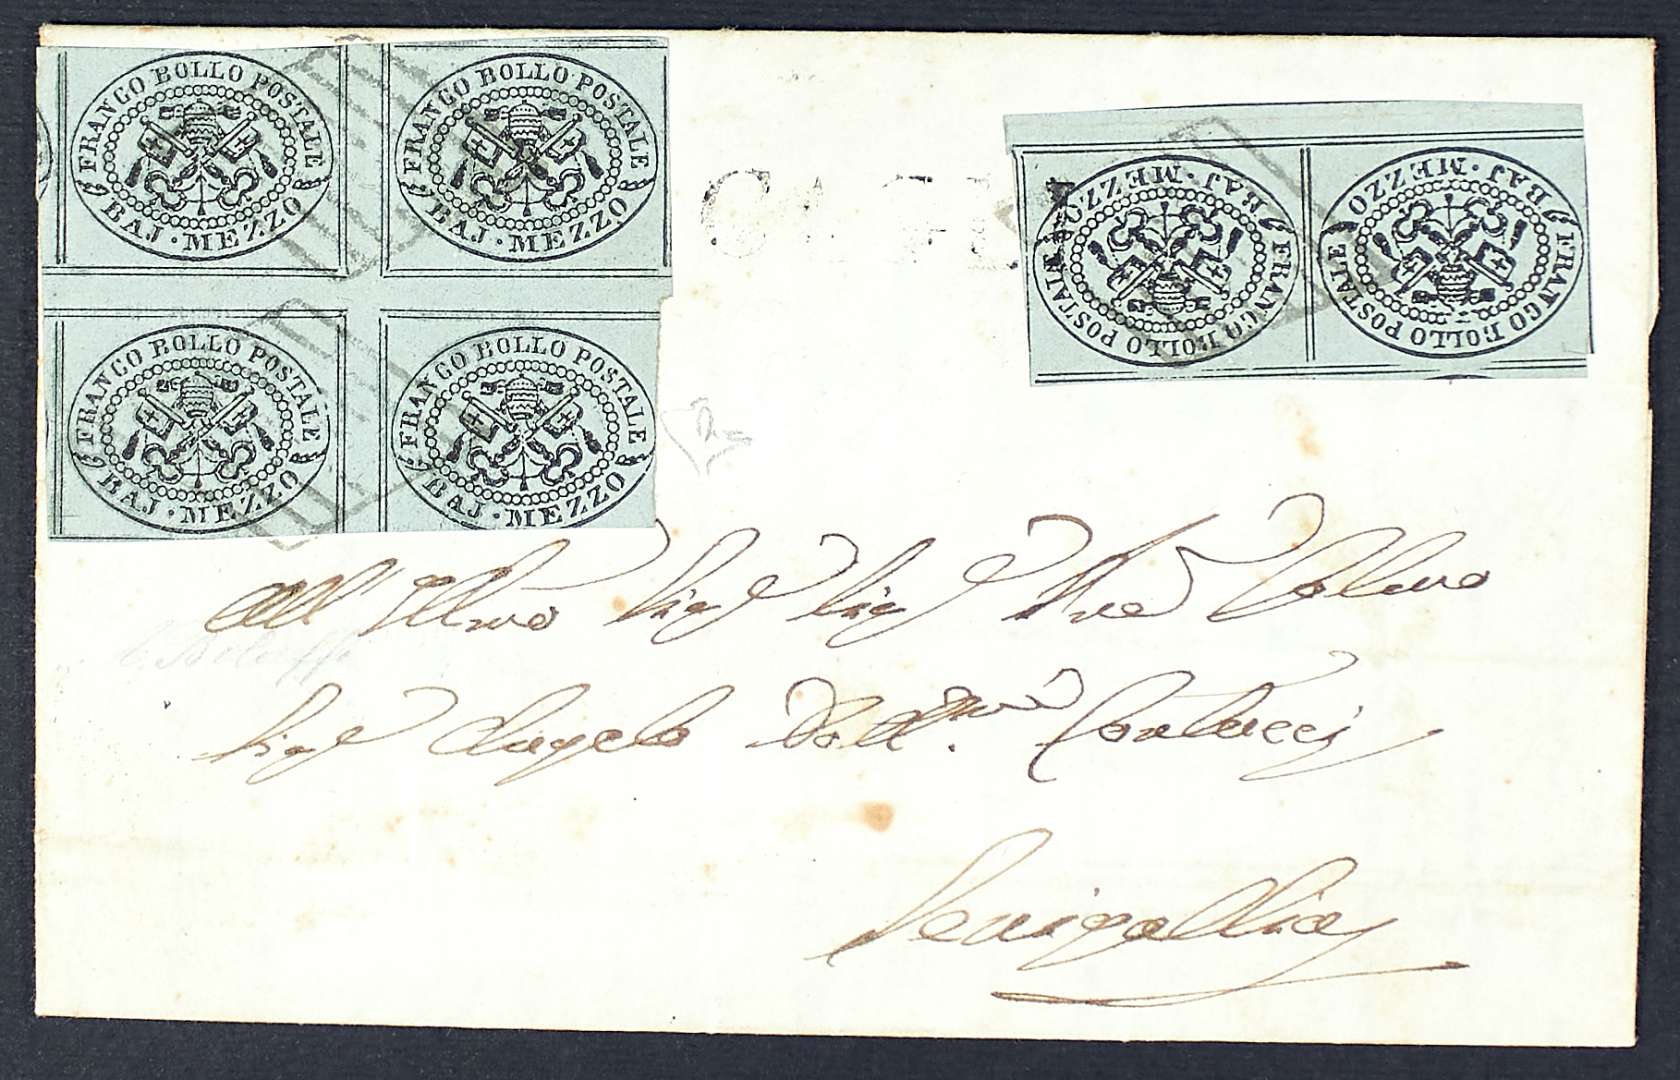 FRANCO BOLLO POSTALE
BAJ · MEZZO
FRANCO BOLLO POSTALE
BAJ · MEZZO
FRANCO BOLLO POSTALE
BAJ · MEZZO
FRANCO BOLLO POSTALE
BAJ · MEZZO
FRANCO BOLLO POSTALE
BAJ · MEZZO
FRANCO BOLLO POSTALE
BAJ · MEZZO
All' Illmo Sig Sig Colmo
Sig Angelo Dott. Contucci
Senigallia